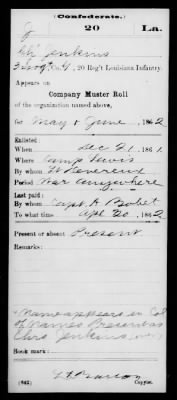 (Confederate.)
J 20 La.
Jenkins
Co. , 20 Reg't Louisiana Infantry.
Appears on
Company Muster Roll
of the organization named above,
for May & June, 1862
Enlisted:
When Dec 21, 1861
Where Camp Lewis
By whom
Period War anywhere
Last paid:
By whom Capt. A
To what time Apl 30, 1862
Present or absent Present
Remarks:
Name appears in Col
of Names Present as
Jenkins
Book mark:
(642)
Copyist.